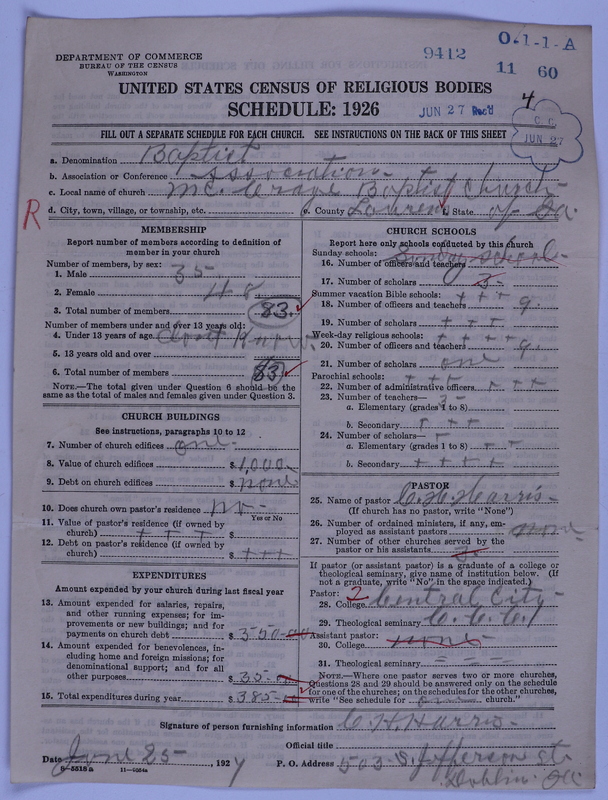 DEPARTMENT OF COMMERCE
BUREAU OF THE CENSUS
WASHINGTON
9412
O-1-1-A
11 60
UNITED STATES CENSUS OF RELIGIOUS BODIES
SCHEDULE: 1926
JUN 27 Rec'd
4
C. C.
JUN 27
FILL OUT A SEPARATE SCHEDULE FOR EACH CHURCH. SEE INSTRUCTIONS ON THE BACK OF THIS SHEET
a. Denomination Baptist
b. Association or Conference Association
c. Local name of church Baptist Church
R
d. City, town, village, or township, etc.
e. County Laurens f. State of Ga.
MEMBERSHIP
Report number of members according to definition of member in your church
Number of members, by sex:
1. Male 35
2. Female 48
3. Total number of members 83
Number of members under and over 13 years old:
4. Under 13 years of age. Dont Know
5. 13 years old and over
6. Total number of members 83
NOTE.—The total given under Question 6 should be the same as the total of males and females given under Question 3.
CHURCH BUILDINGS
See instructions, paragraphs 10 to 12
7. Number of church edifices one
8. Value of church edifices $ 1,000
9. Debt on church edifices $ none
10. Does church own pastor's residence no
Yes or No
11. Value of pastor's residence (if owned by church) + + + $
12. Debt on pastor's residence (if owned by church) $ + + +
EXPENDITURES
Amount expended by your church during last fiscal year
13. Amount expended for salaries, repairs, and other running expenses; for improvements or new buildings; and for payments on church debt $ 350.00
14. Amount expended for benevolences, including home and foreign missions; for denominational support; and for all other purposes $ 35
15. Total expenditures during year $ 385
CHURCH SCHOOLS
Report here only schools conducted by this church
Sunday schools: Sunday School
16. Number of officers and teachers
17. Number of scholars 3
Summer vacation Bible schools:
18. Number of officers and teachers + + + 9
19. Number of scholars + + +
Week-day religious schools:
20. Number of officers and teachers + + + + 9
21. Number of scholars one
Parochial schools:
22. Number of administrative officers + + +
23. Number of teachers— 3
a. Elementary (grades 1 to 8)
b. Secondary + + +
24. Number of scholars—
a. Elementary (grades 1 to 8) + +
b. Secondary + + + +
PASTOR
25. Name of pastor C. H. Harris
(If church has no pastor, write "None")
26. Number of ordained ministers, if any, employed as assistant pastors none
27. Number of other churches served by the pastor or his assistants
If pastor (or assistant pastor) is a graduate of a college or theological seminary, give name of institution below. (If not a graduate, write "No" in the space indicated.)
Pastor: 2
28. College Central City
29. Theological seminary C. C. C.
Assistant pastor:
30. College none
31. Theological seminary
NOTE.—Where one pastor serves two or more churches, Questions 28 and 29 should be answered only on the schedule for one of the churches; on the schedules for the other churches, write "See schedule for one church."
Signature of person furnishing information C. H. Harris
Official title
Date June 25, 1927
P. O. Address 503 S. Jefferson St.
Dublin Ga
8—5518a 11—4054a